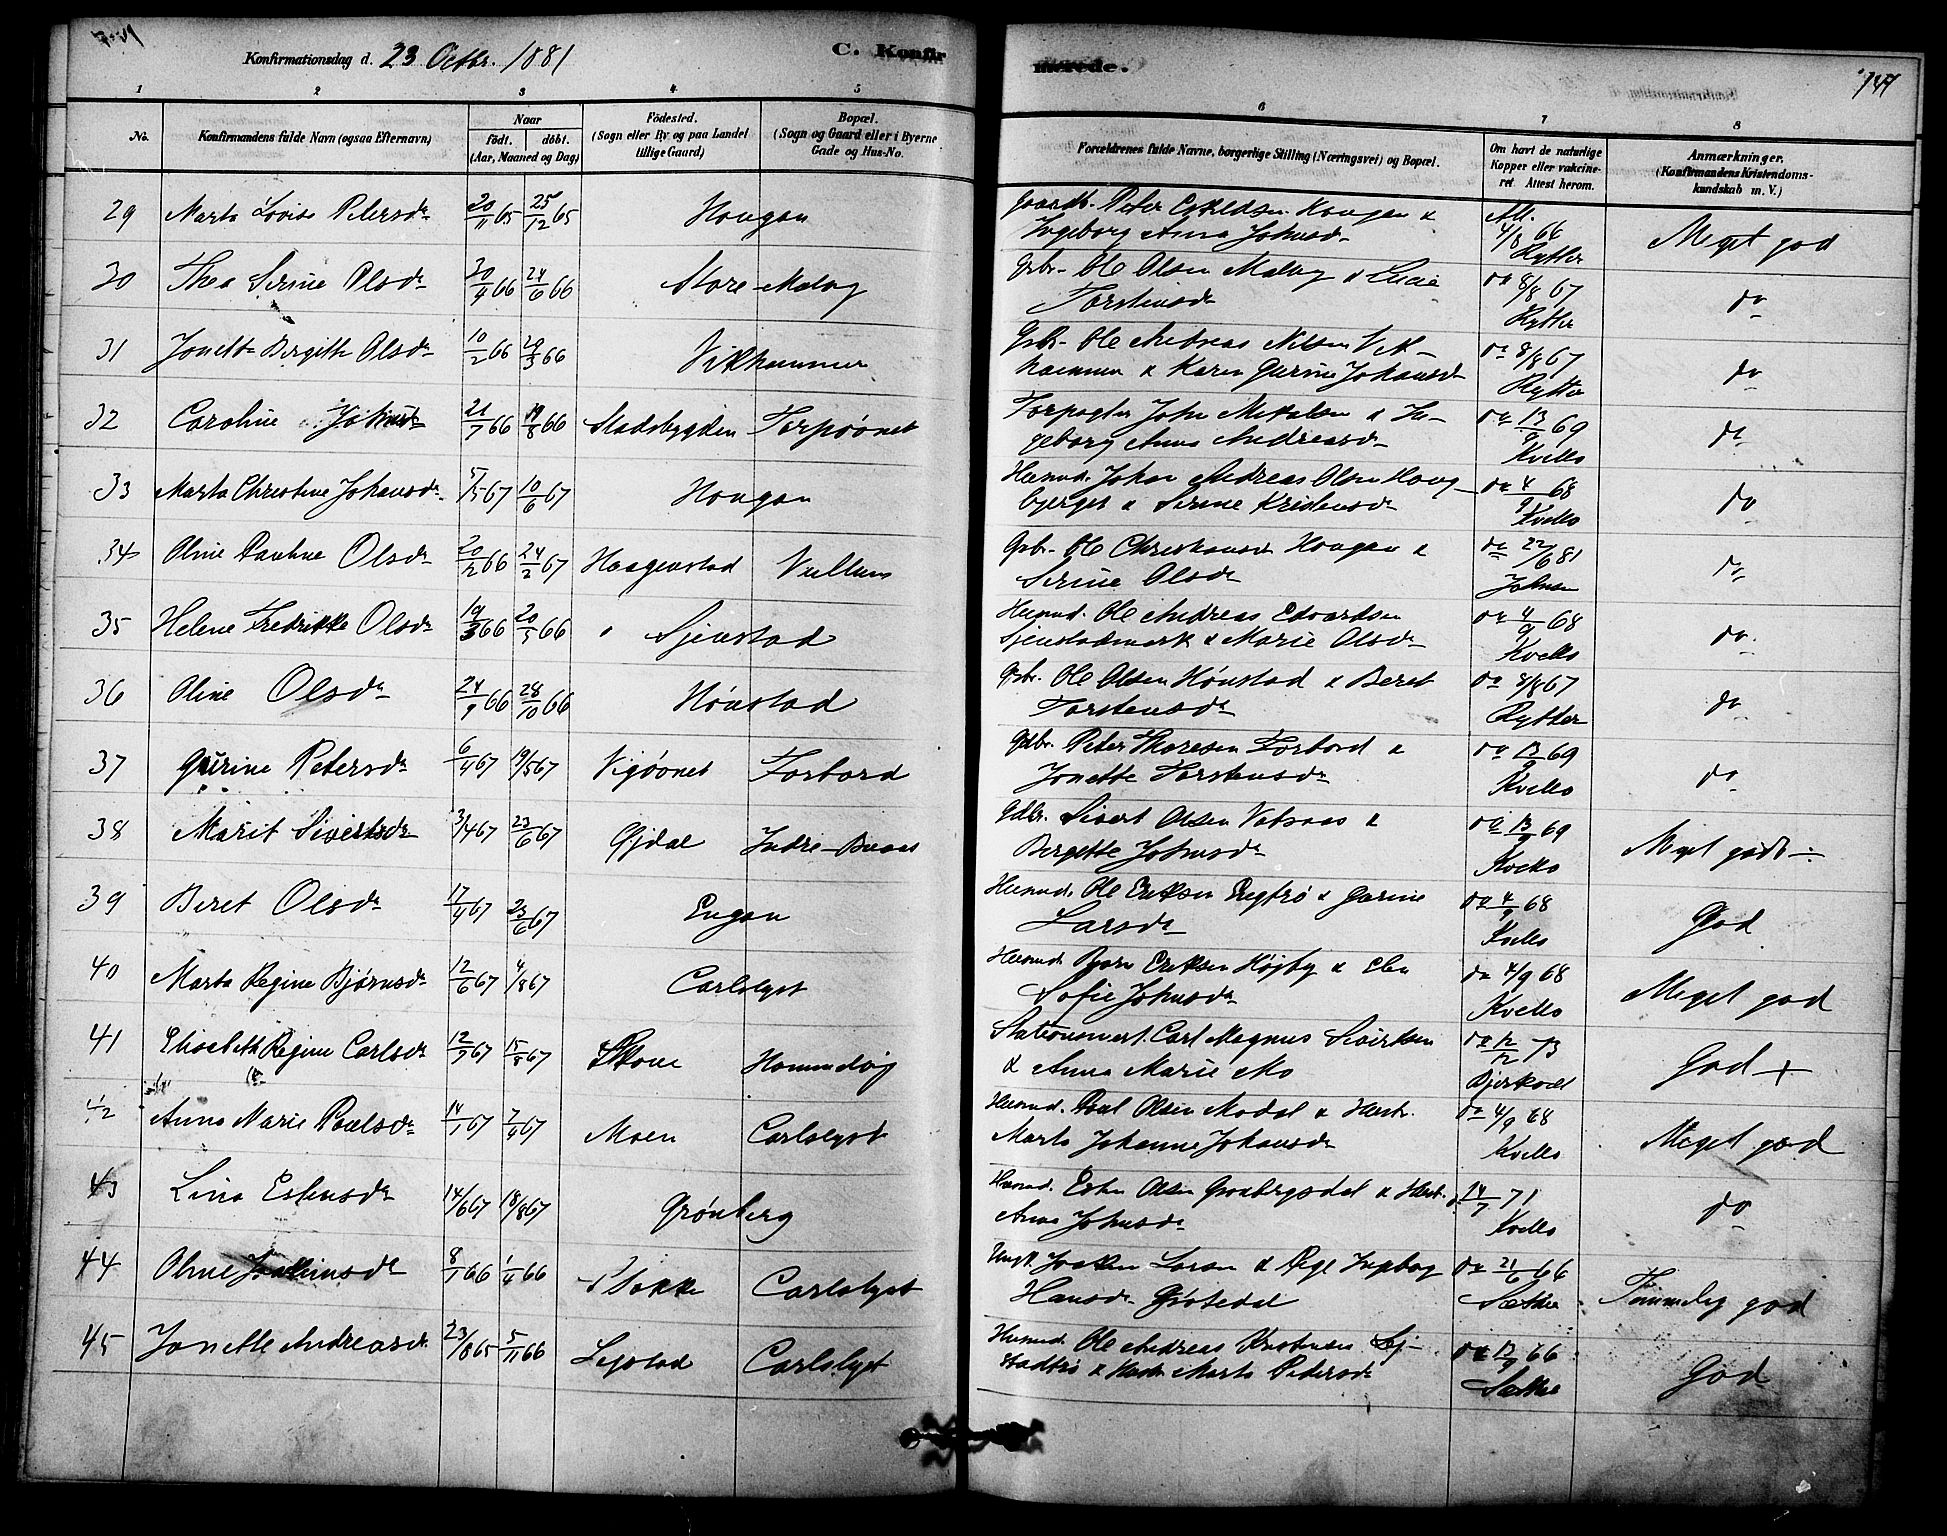 Konfirmationsdag d. 23 Octbr. 1881
C. Konfirmerede.
147
1 2 3 4 5 6 7 8
No. Konfirmandens fulde Navn (ogsaa Efternavn) Naar født. døbt. (Aar, Maaned og Dag) Fødested. (Sogn eller By og paa Landet tillige Gaard) Bopæl. (Sogn og Gaard eller i Byerne Gade og Hus-No. Forældrenes fulde Navne, borgerlige Stilling (Næringsvei) og Bopæl. Om havt de naturlige Kopper eller vakcineret Attest herom. Anmærkninger. (Konfirmandens Kristendomskundskab m. V.)
29 Marta Lovise Petersdr 20/11 65 25/12 65 Hougan Gaardb. Peter Hougan &
Ingeborg Anna Johnsdr Att. 4/8 66 Rytter Meget god
30 Thea Serine Olsdr 20/4 66 24/6 66 Store-Malvig Gbr. Ole Olsen Malvig & Lucie
Torstensdr do 8/8 67 Rytter do
31 Jonette Bergitte Olsdr 10/2 66 29/3 66 Vikhammer Gbr. Ole Andreas Nilsen Vik-
hammer & Karen Gurine Johansdr do 8/8 67 Rytter do
32 Caroline Johnsdr 21/7 66 19/8 66 Stadsbygden Torpøönet Forpagter John Mikalsen & In-
geborg Anna Andreasdr do 13/9 69 Kvello do
33 Marta Christine Johansdr 5/5 67 10/6 67 Hougan Husmd. Johan Andreas Olsen Houg-
berget & Serine Kristensdr do 4/9 68 Kvello do
34 Oline Pauline Olsdr 20/2 66 24/2 67 Haagenstad Vullum Gbr. Ole Christiansen Hougan &
Serine Olsdr do 22/6 81 Johnsen do
35 Helene Fredrikke Olsdr 19/3 66 20/5 66 Sjenstad Husmd. Ole Andreas Edvardsen
Sjenstadmark & Marie Olsdr do 4/9 68 Kvello do
36 Oline Olsdr 24/9 66 28/10 66 Hønstad Gbr. Ole Olsen Hønstad & Beret
Torstensdr do 8/8 67 Rytter do
37 Gurine Petersdr 6/4 67 19/5 67 Vigøönet Forbord Gdbr. Peter Thoresen Forbord &
Jonette Torstensdr do 13/9 69 Kvello do
38 Marit Sivertsdr 3/4 67 23/6 67 Gjdal Indre- Gdbr. Sivert Olsen &
Bergitte Johnsdr do 13/9 69 Kvello Meget godt ÷
39 Beret Olsdr 17/4 67 23/6 67 Engan Husmd. Ole Eriksen & Gurine
Larsdr do 4/9 68 Kvello God
40 Marta Regine Bjørnsdr 12/6 67 4/8 67 Carlslyst Husmd. Bjørn Eriksen Højby & Elen
Sofie Johnsdr do 4/9 68 Kvello Meget god
41 Elisabeth Regine Carlsdr 12/9 67 15/8 67 Hommelvig Stationsmest. Carl Magnus
& Anna Marie Mo do 12/12 73 God +
42 Anna Marie Paulsdr 14/1 67 7/4 67 Moen Carlslyst Husmd. Paul Olsen Modal & Hustr.
Marta Johanne Johansdr do 4/9 68 Kvello Meget god
43 Lina Estensdr 14/6 67 18/8 67 Grønberg Husmd. Esten Olsen Grønbergsdal & Hust.
Anna Johnsdr 14/7 71 Kvello do
44 Oline Joakimsdr 8/1 66 1/4 66 Stokke Carlslyst Ungk. Joakim Larsen & Pige Ingeborg
Hansdr Grøtedal do 21/6 66 Sæther Temmelig god
45 Jonette Andreasdr 23/8 65 5/11 66 Leistad Carlslyst Husmd. Ole Andreas Kristensen Lej-
stadtrø & Hustr Marta Pedersdr do 12/9 66 Sæther God